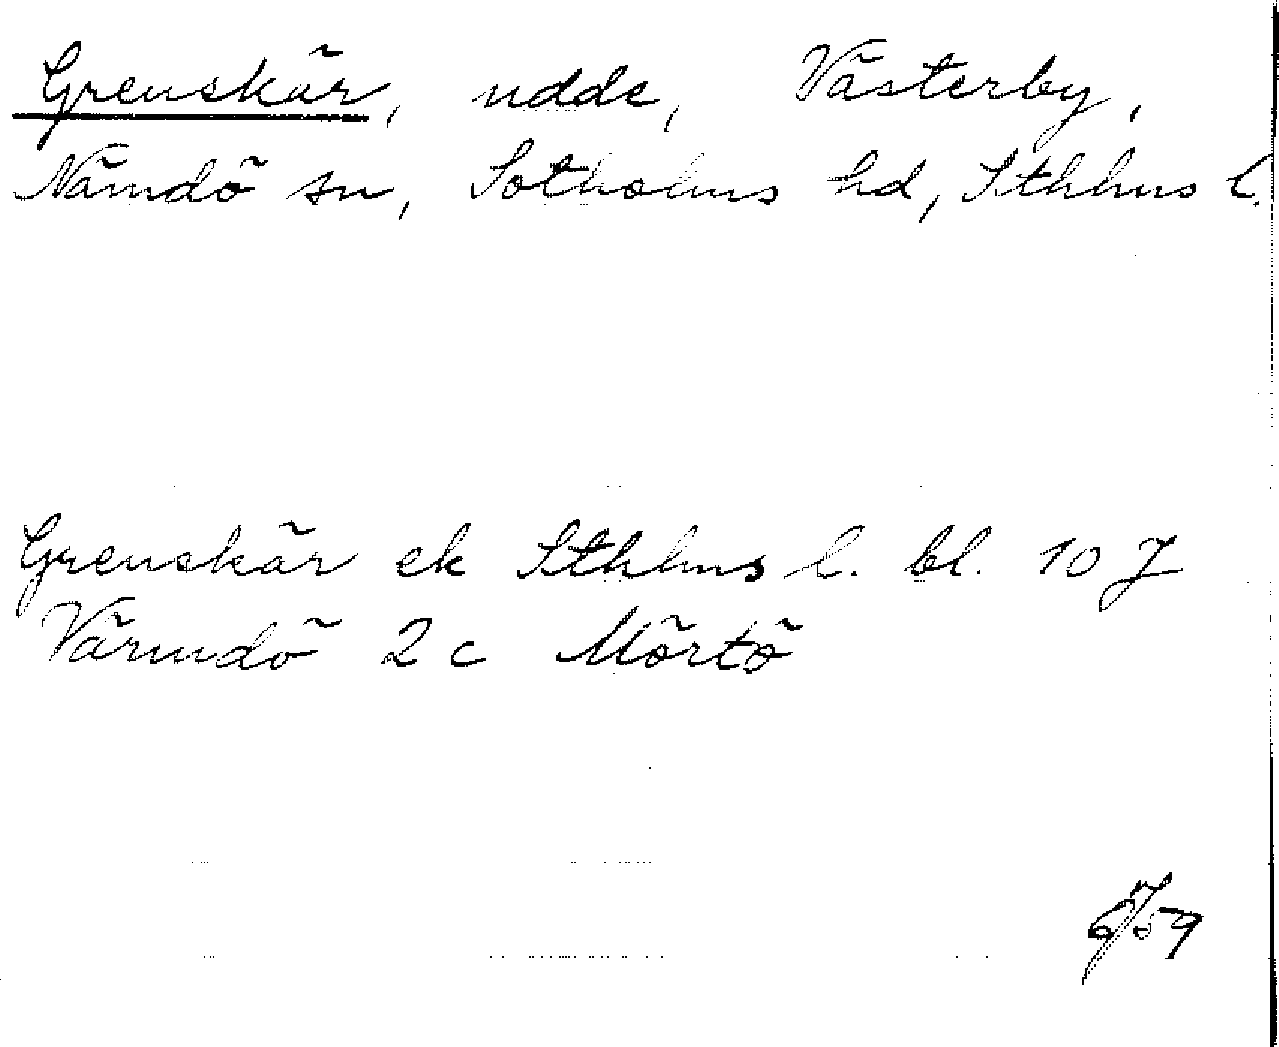 Grenskär, udde, Västerby,
Nämdö sn, Sotholms hd, Sthlms l.
Grenskär ek Sthlms l. bl. 10 J
Värmdö 2 c Mörtö